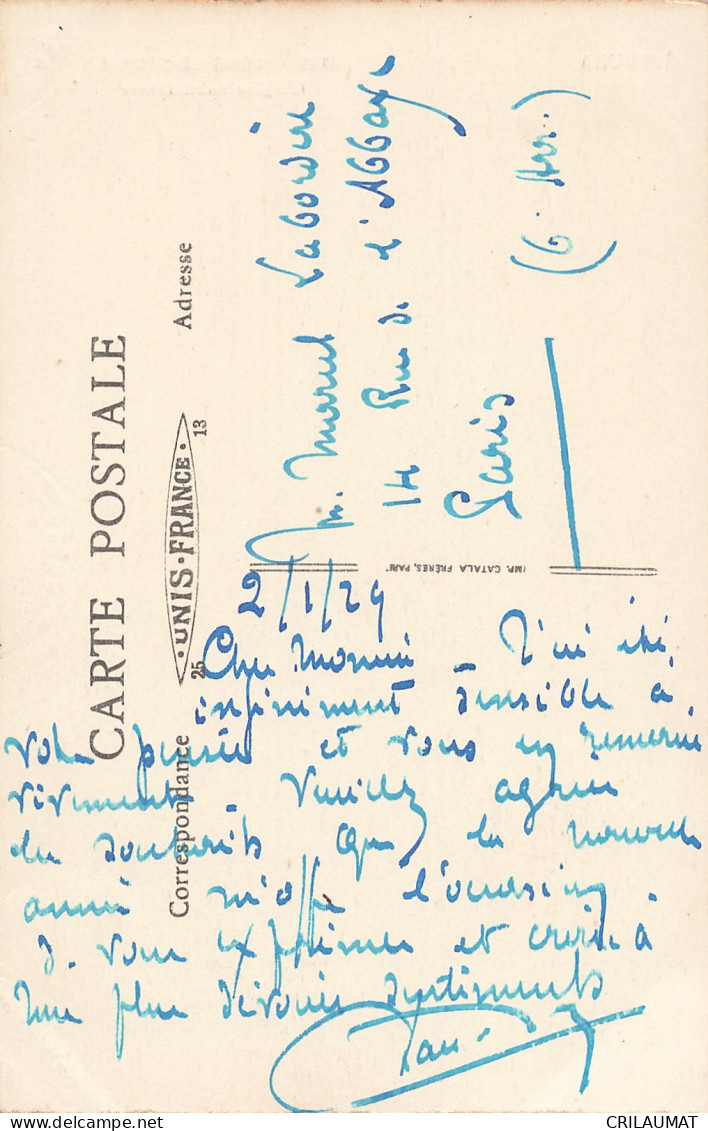 CARTE POSTALE
Correspondance
Adresse
UNIS-FRANCE
25
13
IMP. CATALA FRÈRES, PARIS
M. Marcel Labordère
14 Rue de l'Abbaye
Paris
(6e Arr.)
2/1/29
Cher Monsieur J'ai été
infiniment sensible à
votre pensée et vous en remercie
vivement. Veuillez agréer
les souhaits que la nouvelle
année m'offre l'occasion
de vous exprimer et croire à
mes plus dévoués sentiments
CRILAUMAT